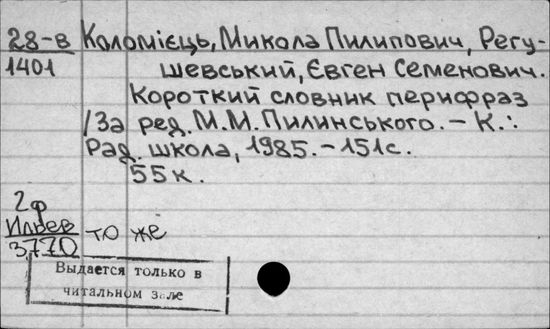 28-в Коломієць, Микола Пилипович, Регу-
1401 шевський, Євген Семенович.
Короткий словник перифраз
/За ред. М.М.Пилинського. - К.:
Рад. школа, 1985. - 151с.
55к.
2ф
Ильев то же
3770
Выдается только в
читальном зале